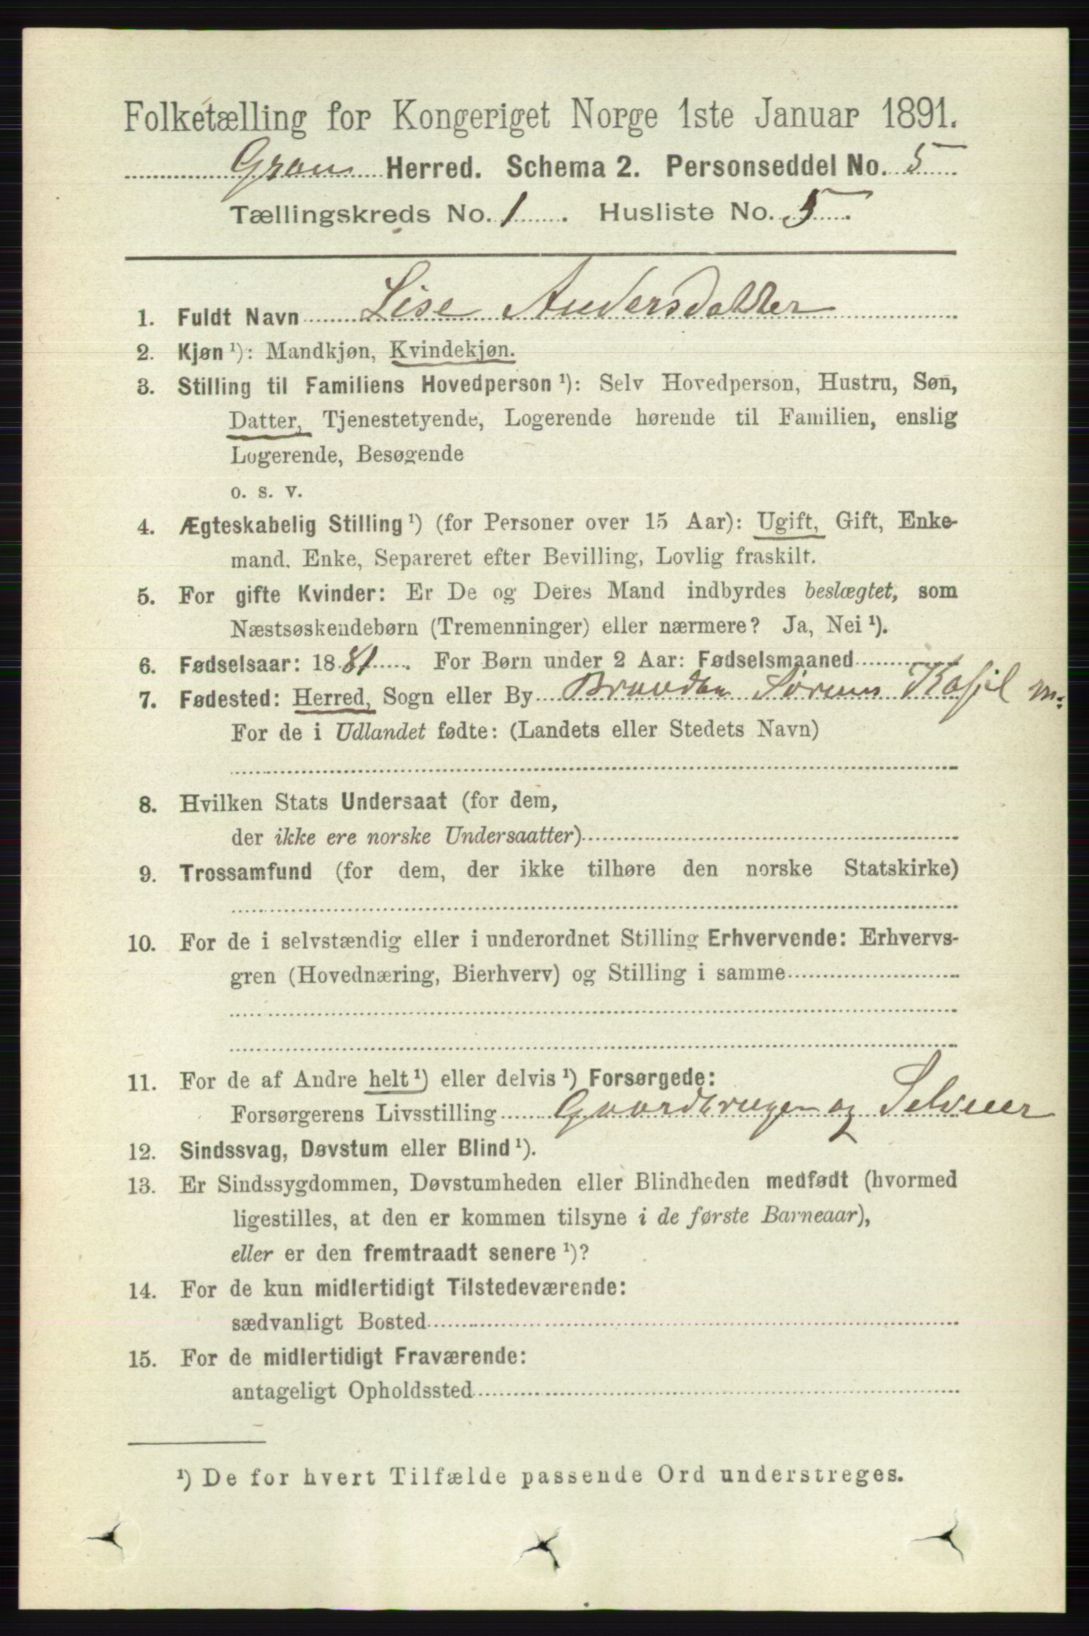 Folketælling for Kongeriget Norge 1ste Januar 1891.
Gran Herred. Schema 2. Personseddel No. 5
Tællingskreds No. 1. Husliste No. 5.
1. Fuldt Navn Lise Andersdatter
2. Kjøn ¹): Mandkjøn, Kvindekjøn.
3. Stilling til Familiens Hovedperson ¹): Selv Hovedperson, Hustru, Søn,
Datter, Tjenestetyende, Logerende hørende til Familien, enslig
Logerende, Besøgende
o. s. v.
4. Ægteskabelig Stilling ¹) (for Personer over 15 Aar): Ugift, Gift, Enke-
mand, Enke, Separeret efter Bevilling, Lovlig fraskilt.
5. For gifte Kvinder: Er De og Deres Mand indbyrdes beslægtet, som
Næstsøskendebørn (Tremenninger) eller nærmere? Ja, Nei ¹).
6. Fødselsaar: 1881. For Børn under 2 Aar: Fødselsmaaned
7. Fødested: Herred, Sogn eller By Brandbu Sørum
For de i Udlandet fødte: (Landets eller Stedets Navn)
8. Hvilken Stats Undersaat (for dem,
der ikke ere norske Undersaatter)
9. Trossamfund (for dem, der ikke tilhøre den norske Statskirke)
10. For de i selvstændig eller i underordnet Stilling Erhvervende: Erhvervs-
gren (Hovednæring, Bierhverv) og Stilling i samme
11. For de af Andre helt ¹) eller delvis ¹) Forsørgede:
Forsørgerens Livsstilling Gaardbruger og Selveier
12. Sindssvag, Døvstum eller Blind ¹).
13. Er Sindssygdommen, Døvstumheden eller Blindheden medfødt (hvormed
ligestilles, at den er kommen tilsyne i de første Barneaar),
eller er den fremtraadt senere ¹)?
14. For de kun midlertidigt Tilstedeværende:
sædvanligt Bosted
15. For de midlertidigt Fraværende:
antageligt Opholdssted
¹) De for hvert Tilfælde passende Ord understreges.